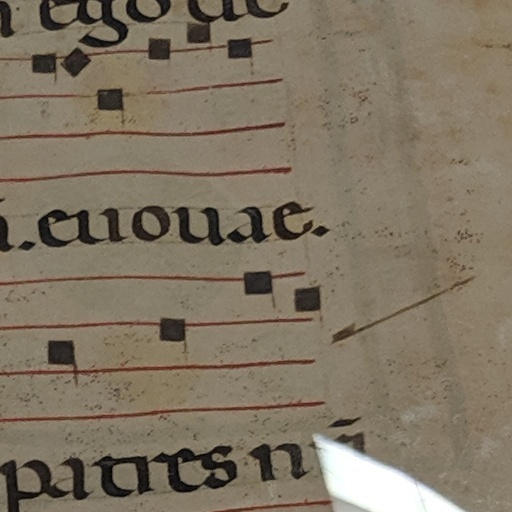 ego de
euouae.
patres nr̄i